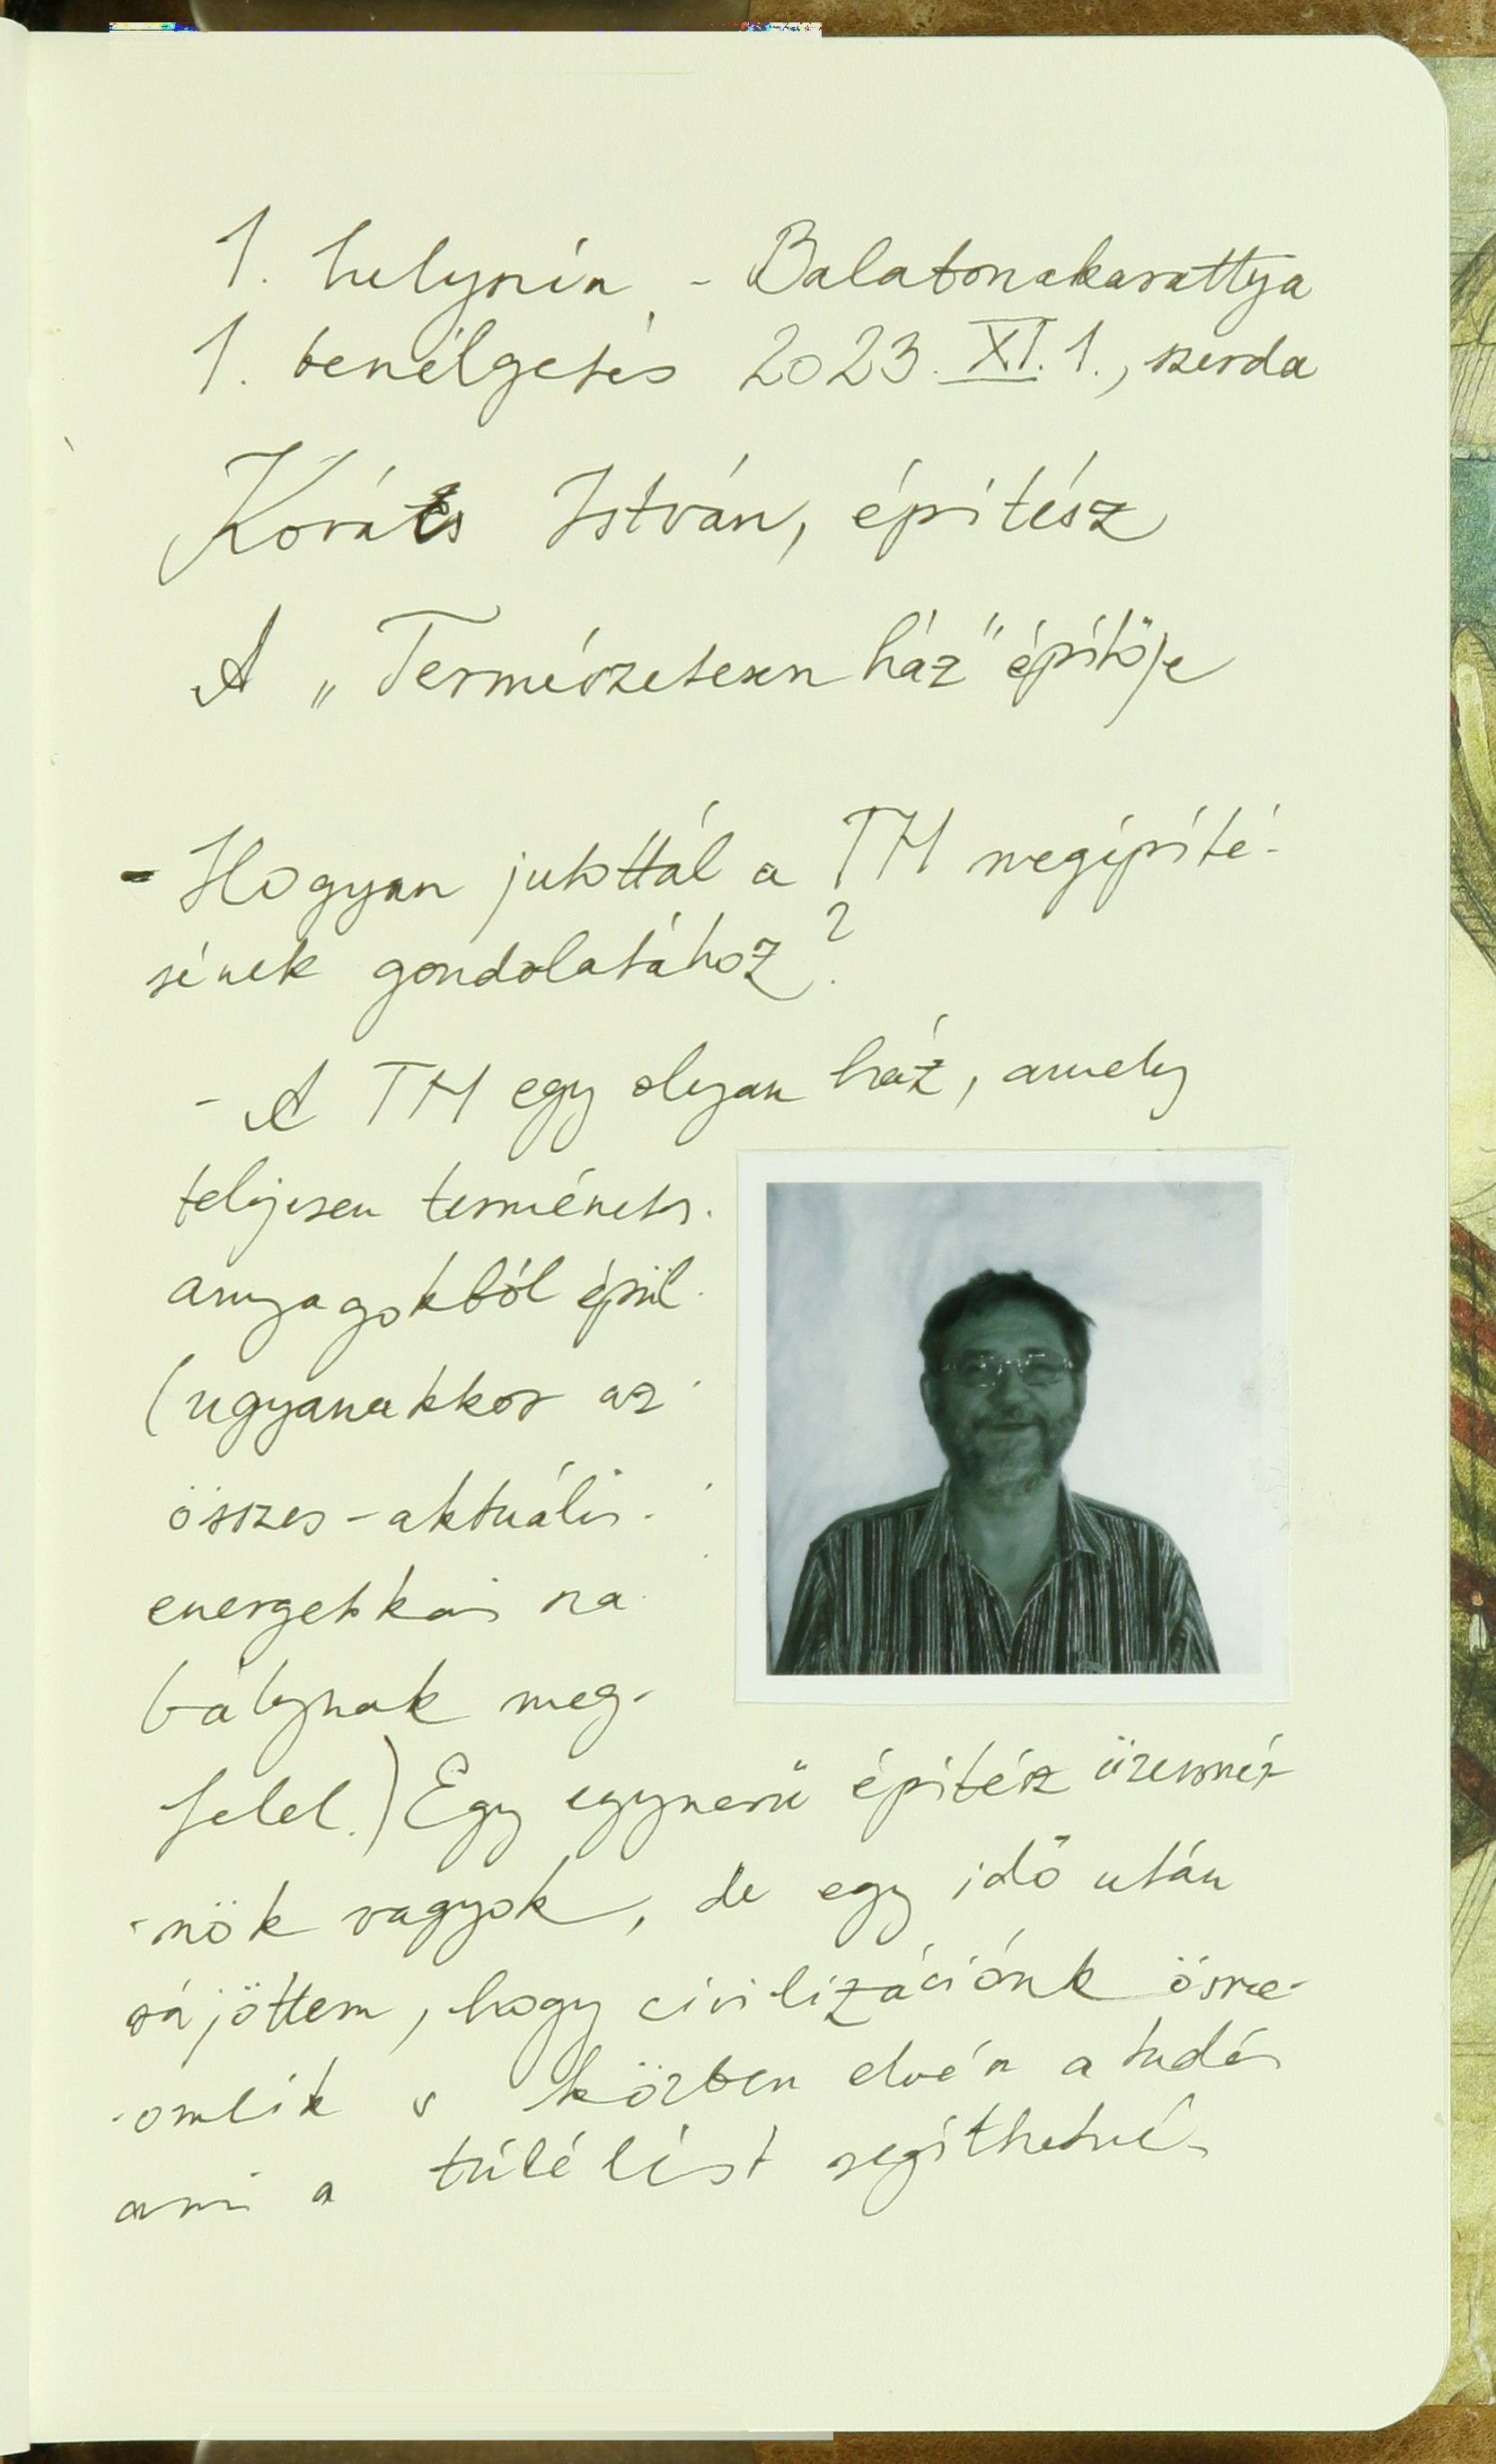 1. helyszín - Balatonakarattya
1. beszélgetés 2023. XI. 1., szerda
Kovács István, építész
A „Természetesen ház" építője
- Hogyan jutottál a TH megépíté-
sének gondolatához?
- A TH egy olyan ház, amely
teljesen természetes
anyagokból épül
(ugyanakkor az
összes - aktuális -
energetikai sza-
bálynak meg-
felel.) Egy egyszerű építész üzemmér-
nök vagyok, de egy idő után
rájöttem, hogy civilizációnk össze-
omlik s közben elvész a tudás
ami a túlélést segíthetné